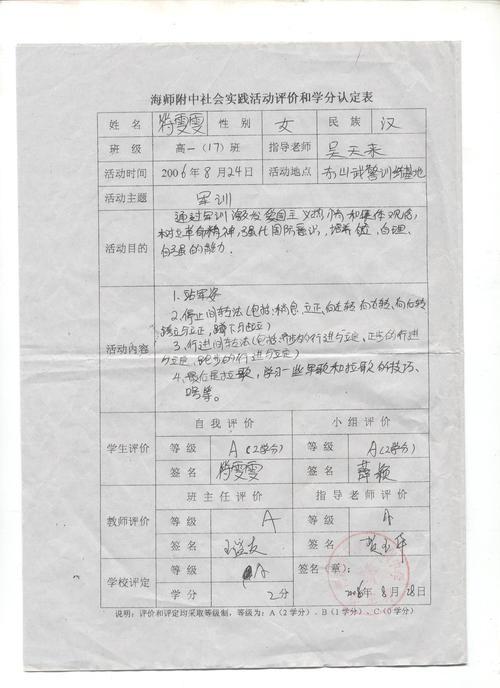 海师附中社会实践活动评价和学分认定表
姓名 符雯雯 性别 女 民族 汉
班级 高一(17)班 指导老师 吴天来
活动时间 2006年8月24日 活动地点 东山武警训练基地
活动主题 军训
通过军训激发爱国主义热情和集体观念,
活动目的 树立革命精神,强化国防意识,培养自理、
自强的能力.
1.站军姿
2.停止间转法(包括:稍息、立正、向左转 向右转、向后转
跨立与立正,蹲下与起立)
活动内容 3.行进间转法(包括:齐步的行进与立定、正步的行进
与立定、跑步的行进与立定)
4.最后是拉歌,学习一些军歌和拉歌的技巧、
口号等。
自我评价 小组评价
学生评价 等级 A(2学分) 等级 A(2学分)
签名 符雯雯 签名 薛颖
班主任评价 指导老师评价
教师评价 等级 A 等级 A
签名 签名
学校评定 等级 A 签名(章):
学分 2分 2006年8月28日
说明:评价和评定均采取等级制,等级为:A(2学分)、B(1学分)、C(0学分)